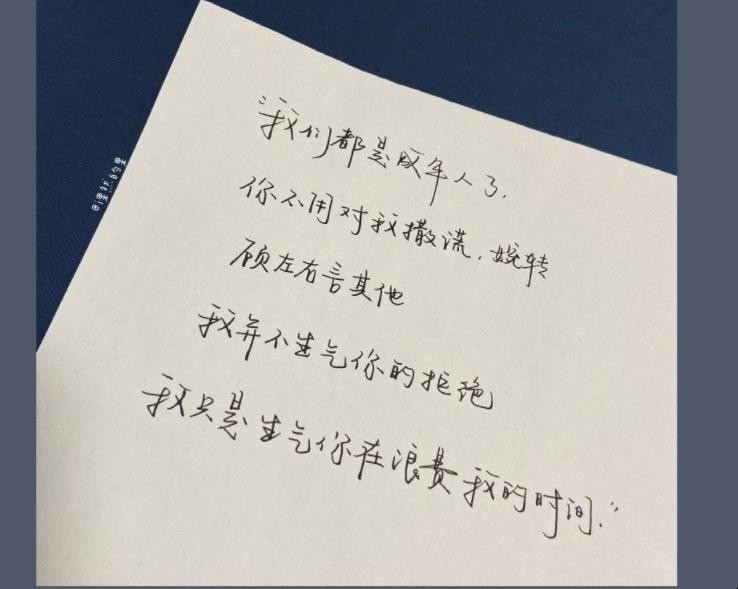 “我们都是成年人了.
你不用对我撒谎.婉转
顾左右言其他
我并不生气你的拒绝
我只是生气你在浪费我的时间.”